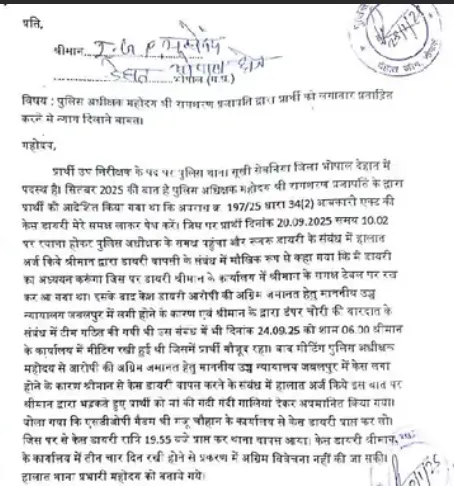 प्रति,
श्रीमान I.G.P महोदय
देहात भोपाल झोन
भोपाल (म.प्र.)
विषय : पुलिस अधीक्षक महोदय श्री रामशरण प्रजापति द्वारा प्रार्थी को लगातार प्रताड़ित
करने से न्याय दिलाने बाबत।
महोदय,
प्रार्थी उप निरीक्षक के पद पर पुलिस थाना सूखी सेवनिया जिला भोपाल देहात में
पदस्थ है। सितम्बर 2025 की बात है पुलिस अधिक्षक महोदय श्री रामशरण प्रजापति के द्वारा
प्रार्थी को आदेशित किया गया था कि अपराध क्र. 197/25 धारा 34(2) आबकारी एक्ट की
केस डायरी मेरे समक्ष लाकर पेश करें। जिस पर प्रार्थी दिनांक 20.09.2025 समय 10.02
पर रवाना होकर पुलिस अधीक्षक के समक्ष पहुंचा और रूबरू डायरी के संबंध में हालात
अर्ज किये श्रीमान द्वारा डायरी वापसी के संबंध में मौखिक रूप से कहा गया कि मै डायरी
का अध्ययन करूंगा जिस पर डायरी श्रीमान के कार्यालय में श्रीमान के समक्ष टेबल पर रख
कर आ गया था। इसके बाद केश डायरी आरोपी की अग्रिम जमानत हेतु माननीय उच्च
न्यायालय जबलपुर में लगी होने के कारण एवं श्रीमान के द्वारा डंपर चोरी की वारदात के
संबंध में टीम गठित की गयी थी उस संबंध में भी दिनांक 24.09.25 को शाम 06.00 श्रीमान
के कार्यालय में मीटिंग रखी हुई थी जिसमें प्रार्थी मौजूद रहा। बाद मीटिंग पुलिस अधीक्षक
महोदय से आरोपी की अग्रिम जमानत हेतु माननीय उच्च न्यायालय जबलपुर में केस लगा
होने के कारण श्रीमान से केस डायरी वापस करने के संबंध में हालात अर्ज किये इस बात पर
श्रीमान द्वारा भड़कते हुए प्रार्थी को मां की गदी गदी गालियां देकर अपमानित किया गया।
बोला गया कि एसडीओपी मैडम श्री मंजू चौहान के कार्यालय से केस डायरी प्राप्त कर लो।
जिस पर से केस डायरी रात्रि 19.55 बजे प्राप्त कर थाना वापस आया। केस डायरी श्रीमान
के कार्यालय में तीन चार दिन रखी होने से प्रकरण में अग्रिम विवेचना नहीं की जा सकी।
हालात थाना प्रभारी महोदय को बताये गये।